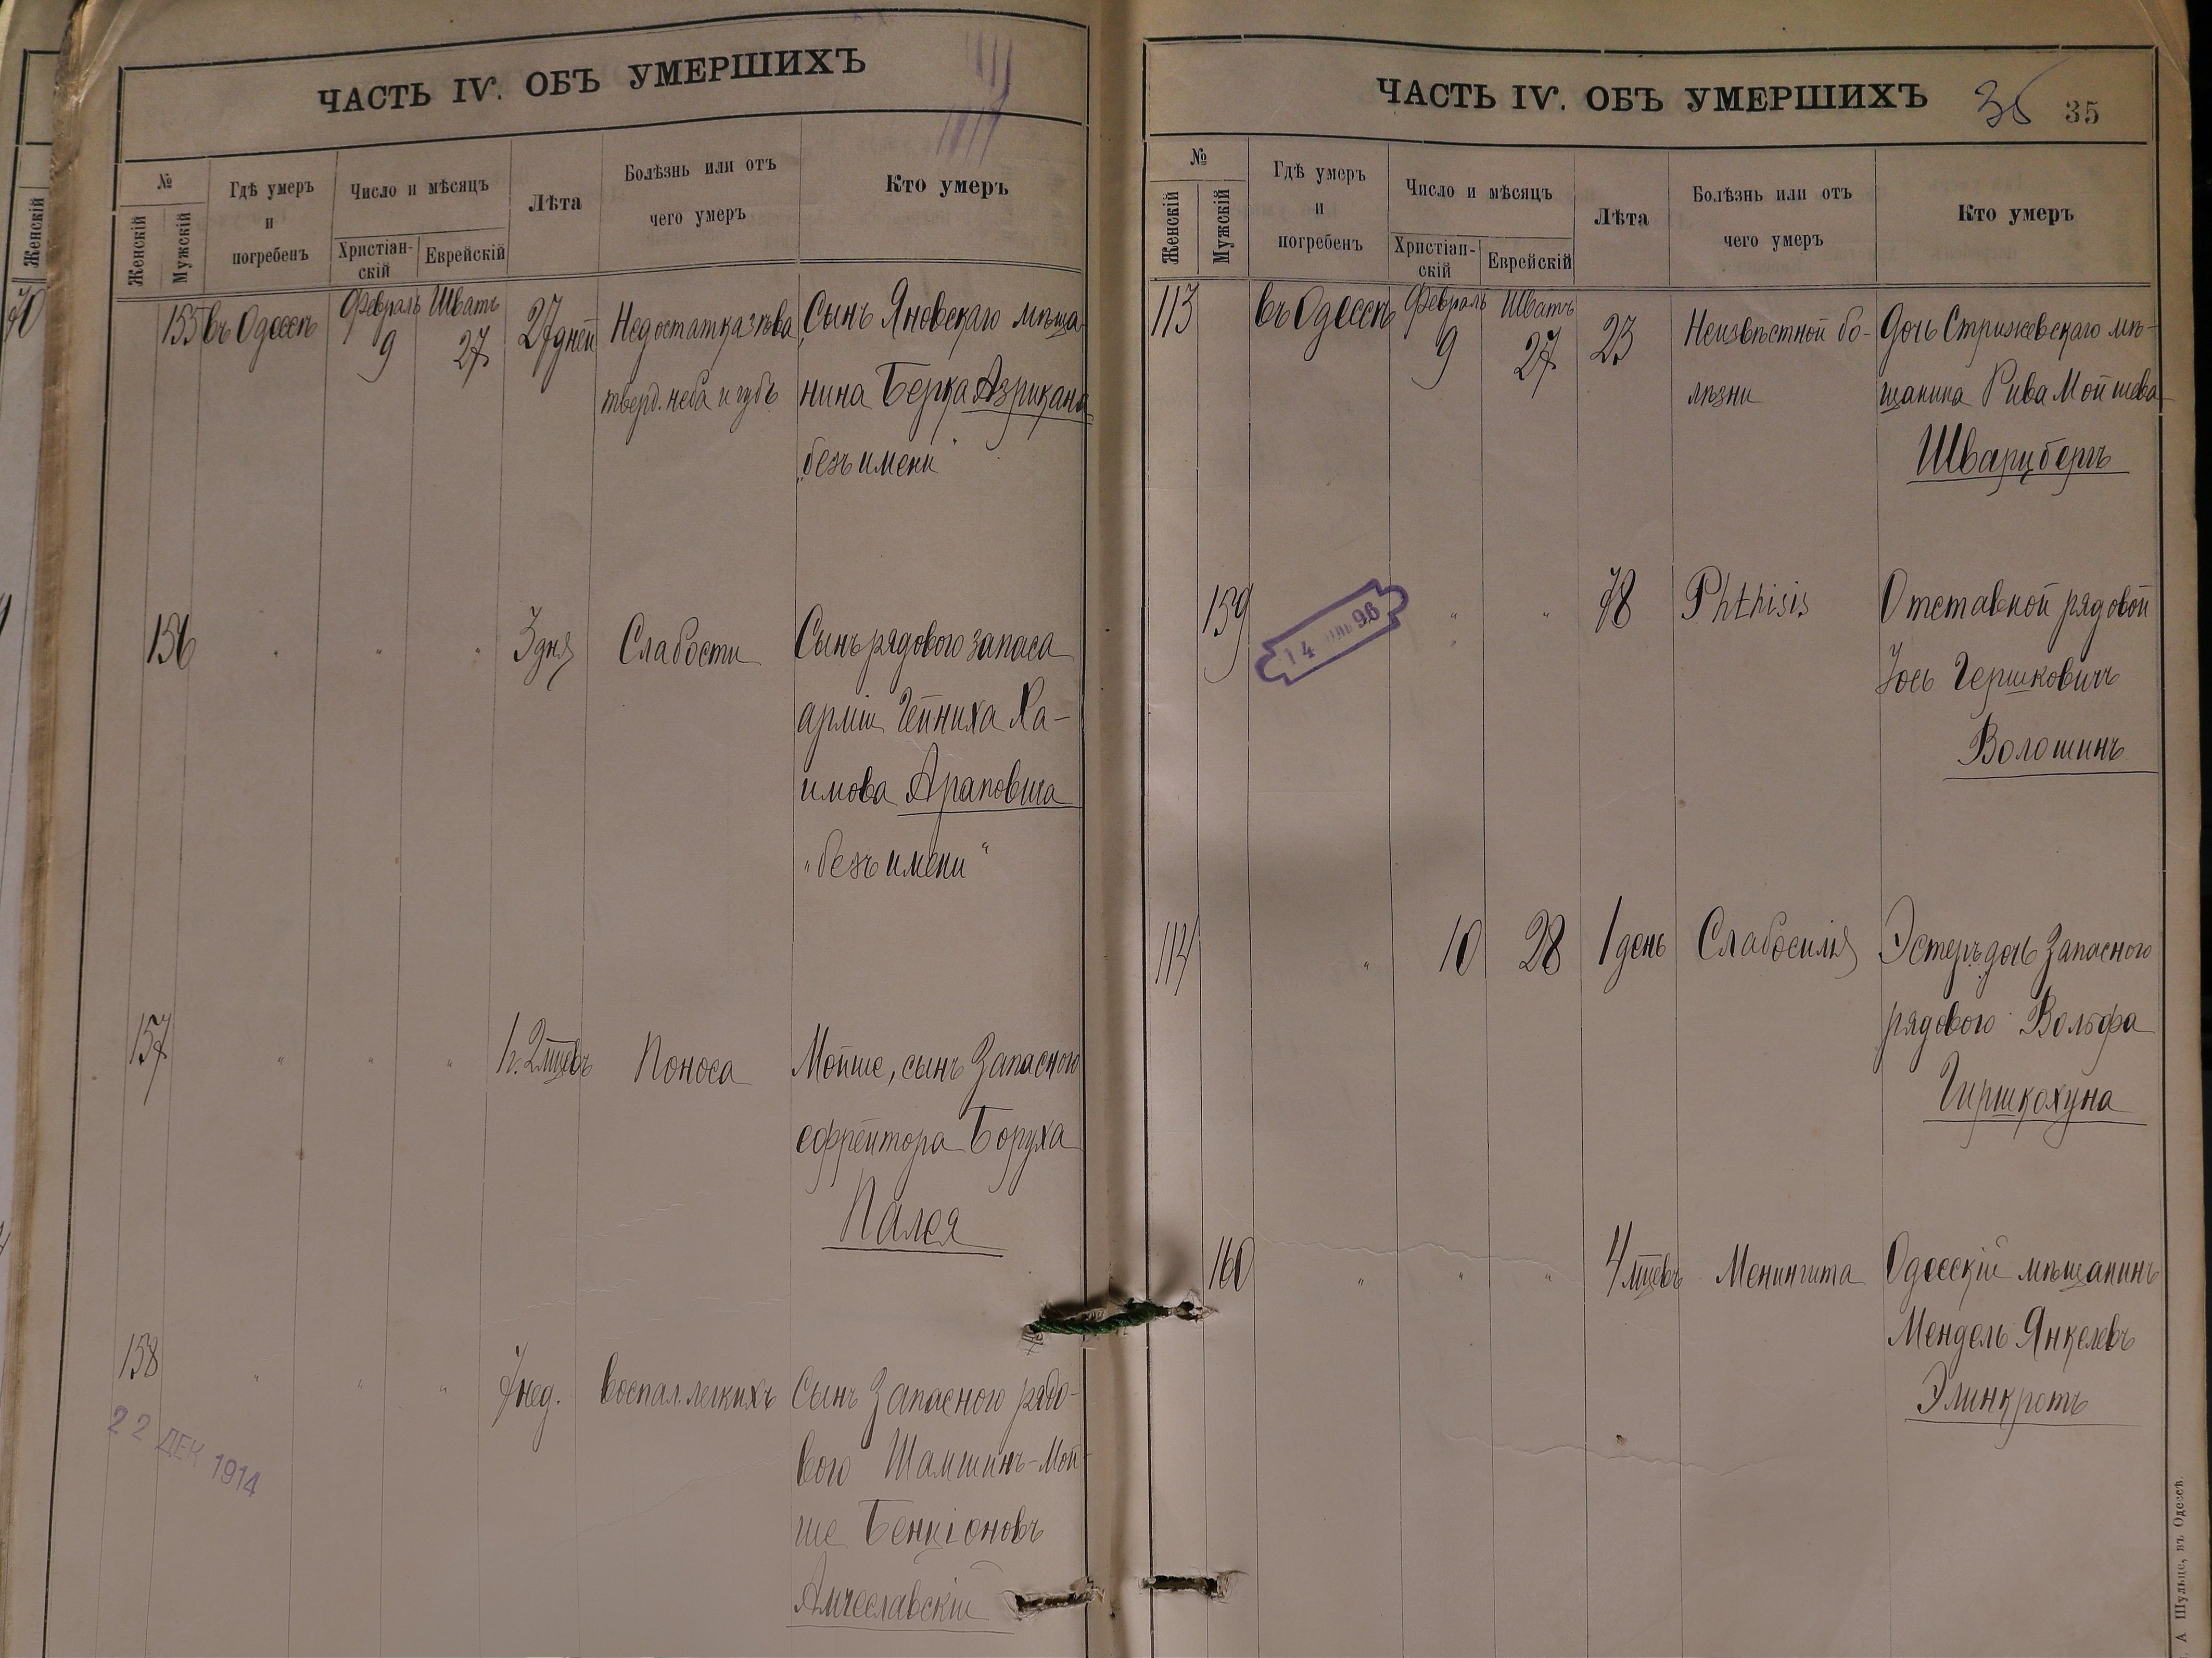 ЧАСТЬ IV. ОБЪ УМЕРШИХЪ
№
Женскій
Мужскій
Гдѣ умеръ
и
погребенъ
Число и мѣсяцъ
Христіан-
скій
Еврейскій
Лѣта
Болѣзнь или отъ
чего умеръ
Кто умеръ
Женскій
70
155 въ Одессѣ Февраль 9 Шватъ 27 27 дней Недостатка зѣва Сынъ Яновскаго мѣща-
тверд. неба и губъ нина Берка Азрикана
"безъ имени"
156 " " " 3 дня Слабости Сынъ рядового запаса
арміи Гейниха Ха-
имова Араповича
"безъ имени"
157 " " " 1 г. 2 мцевъ Поноса Мойше, сынъ Запасного
ефрейтора Боруха
Палея
158 " " " 7 нед. Воспал. легкихъ Сынъ Запасного рядо-
вого Шамшинъ-Мой-
ше Бенціоновъ
Амчеславскій
22 ДЕК 1914
ЧАСТЬ IV. ОБЪ УМЕРШИХЪ
35 35
№
Женскій
Мужскій
Гдѣ умеръ
и
погребенъ
Число и мѣсяцъ
Христіан-
скій
Еврейскій
Лѣта
Болѣзнь или отъ
чего умеръ
Кто умеръ
113 въ Одессѣ Февраль 9 Шватъ 27 23 Неизвѣстной бо- Дочь Стрижевскаго мѣ-
лѣзни щанина Рива Мойшева
Шварцбергъ
159 " " 78 Phthisis Отставной рядовой
Іось Гершковичъ
Волошинъ
14 96
114 " 10 28 1 день Слабосилія Эстеръ дочь Запасного
рядового Вольфа
Гиршкохуна
160 " " " 4 мцевъ Менингита Одесскій мѣщанинъ
Мендель Янкелевъ
Элинкротъ
А Шульце, въ Одессѣ.